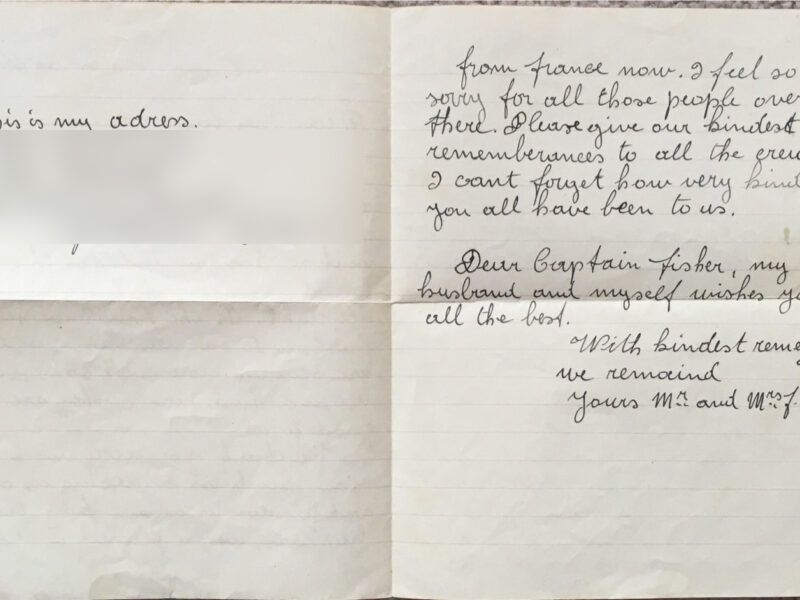 is is my adress.
from france now. I feel so
sorry for all those people over
there. Please give our kindest
rememberances to all the crew
I cant forget how very kind
you all have been to us.
Dear Captain fisher, my
husband and myself wishes yo
all the best.
With kindest reme
we remaind
Yours Mr. and Mrs. f.